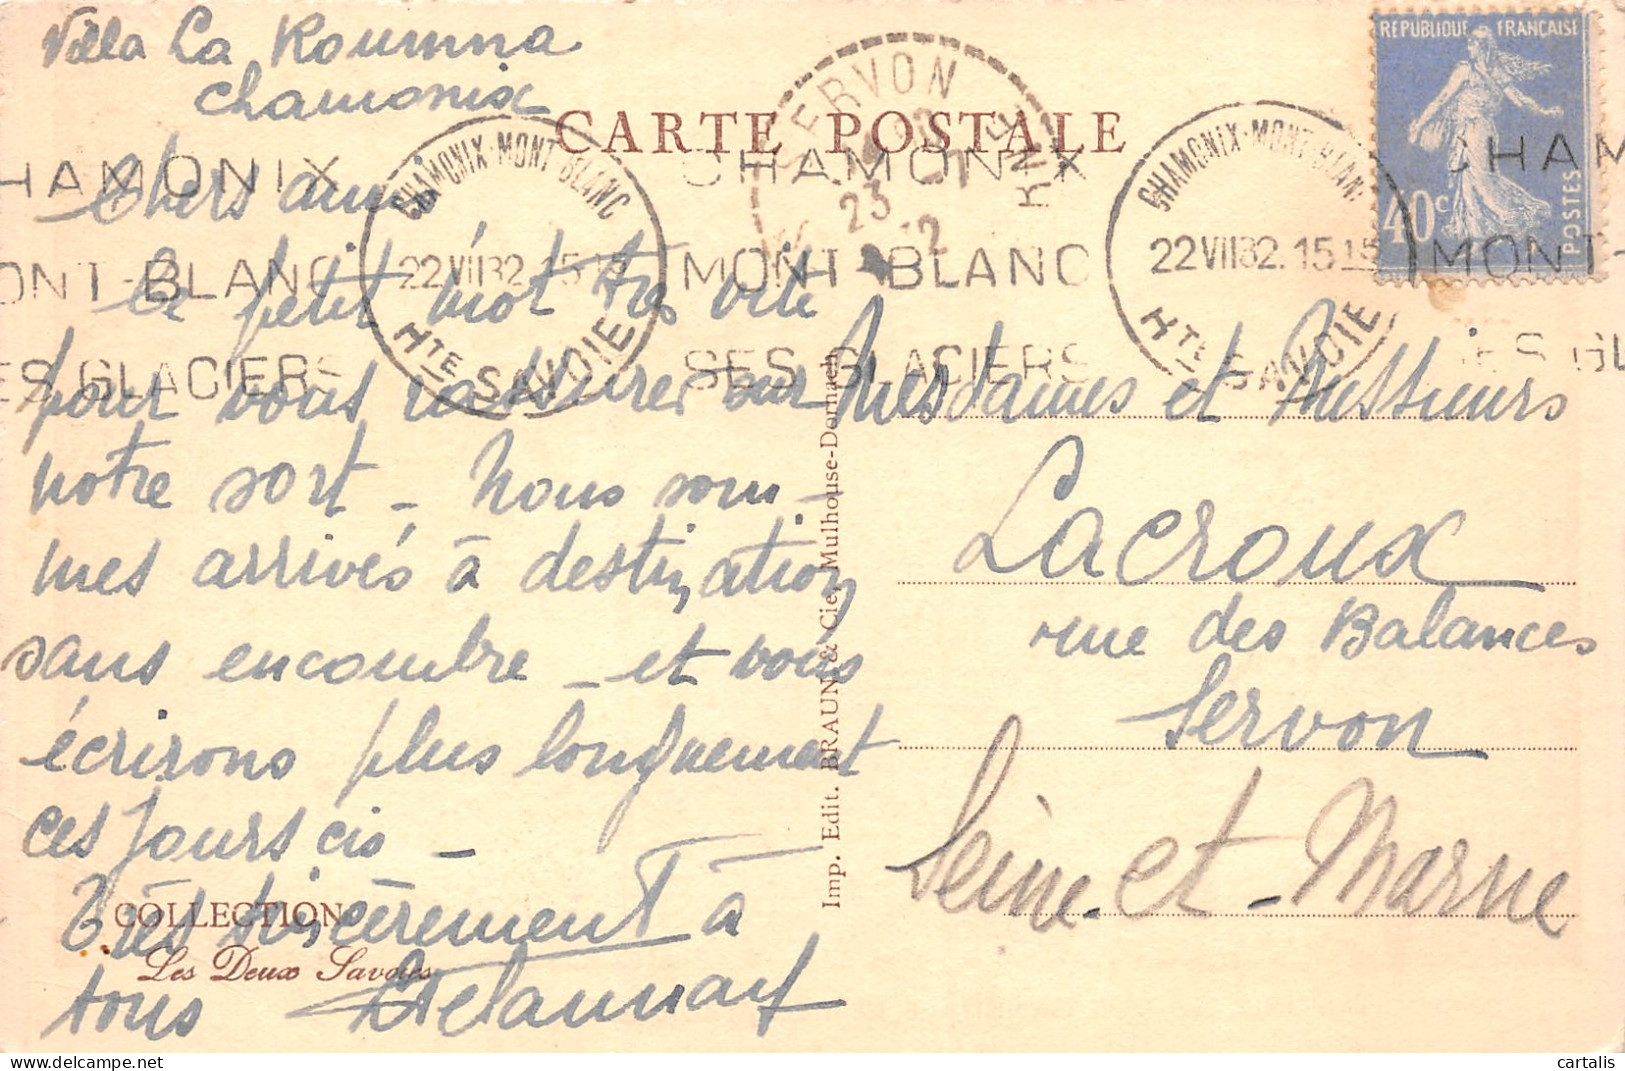 Villa La Roumna
Chamonix
CARTE POSTALE
REPUBLIQUE FRANÇAISE
40c
POSTES
SERVON
23
CHAMONIX-MONT-BLANC
22 VII 32. 15 15
Hte SAVOIE
CHAMONIX
MONT-BLANC
SES GLACIERS
CHAMONIX-MONT-BLANC
22 VII 32. 15 15
Hte SAVOIE
Chers amis
Ce petit mot très vite
pour vous rassurer sur
notre sort - Nous som-
mes arrivés à destination
sans encombre - et vous
écrirons plus longuement
ces jours cis -
Très sincèrement à
tous
Mesdames et Messieurs
Lacroux
rue des Balances
Servon
Seine-et-Marne
Imp. Edit. BRAUN & Cie, Mulhouse-Dornach
COLLECTION
Les Deux Savoies
cartalis